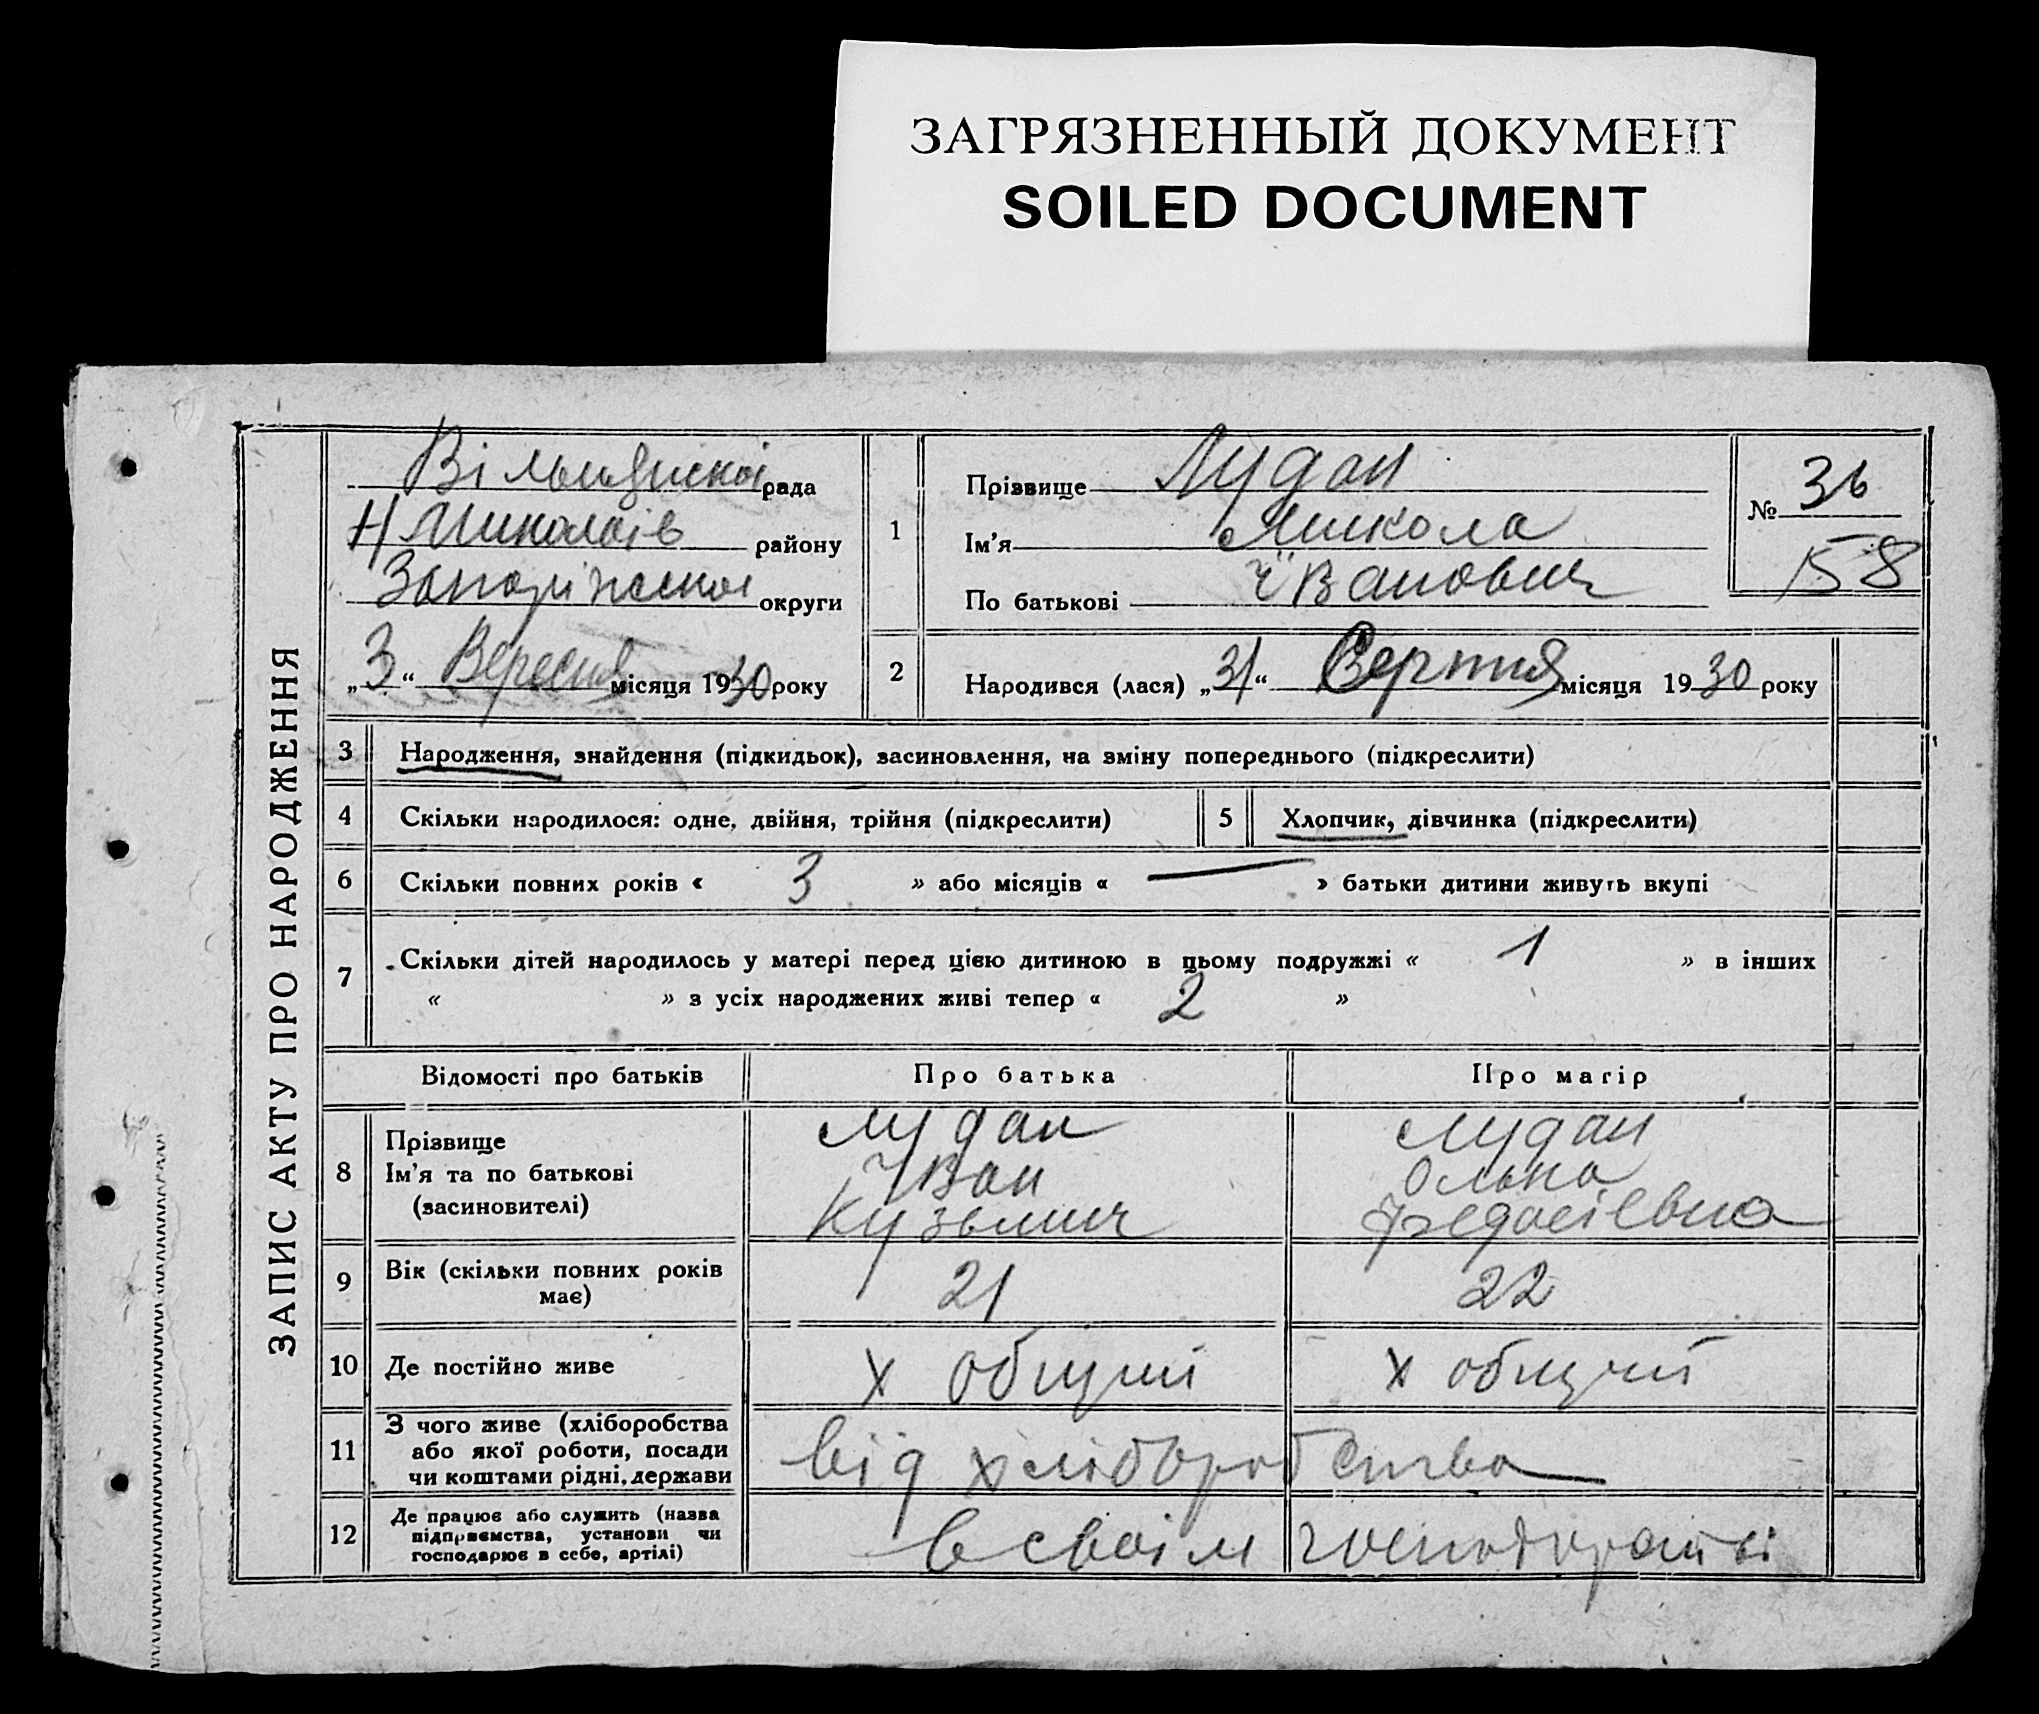 ЗАГРЯЗНЕННЫЙ ДОКУМЕНТ
SOILED DOCUMENT
ЗАПИС АКТУ ПРО НАРОДЖЕННЯ
рада
Н Миколаїв району
Запоріжської округи
„3“ Вересня місяця 1930 року
1
Прізвище Лудан
Ім'я Микола
По батькові Іванович
№ 36
158
2
Народився (лася) „31“ Серпня місяця 1930 року
3 Народження, знайдення (підкидьок), засиновлення, на зміну попереднього (підкреслити)
4 Скільки народилося: одне, двійня, трійня (підкреслити)
5 Хлопчик, дівчинка (підкреслити)
6 Скільки повних років « 3 » або місяців « — » батьки дитини живуть вкупі
7 Скільки дітей народилось у матері перед цією дитиною в цьому подружжі « 1 » в інших
« » з усіх народжених живі тепер « 2 »
Відомості про батьків Про батька Про матір
8 Прізвище
Ім'я та по батькові
(засиновителі)
Лудан
Іван
Кузьмич
Лудан
Ольга
Федосіевна
9 Вік (скільки повних років
має)
21 22
10 Де постійно живе
х общий х общий
11 З чого живе (хліборобства
або якої роботи, посади
чи коштами рідні, держави
від хліборобства
12 Де працює або служить (назва
підприємства, установи чи
господарює в себе, артілі)
в своїм господарстві